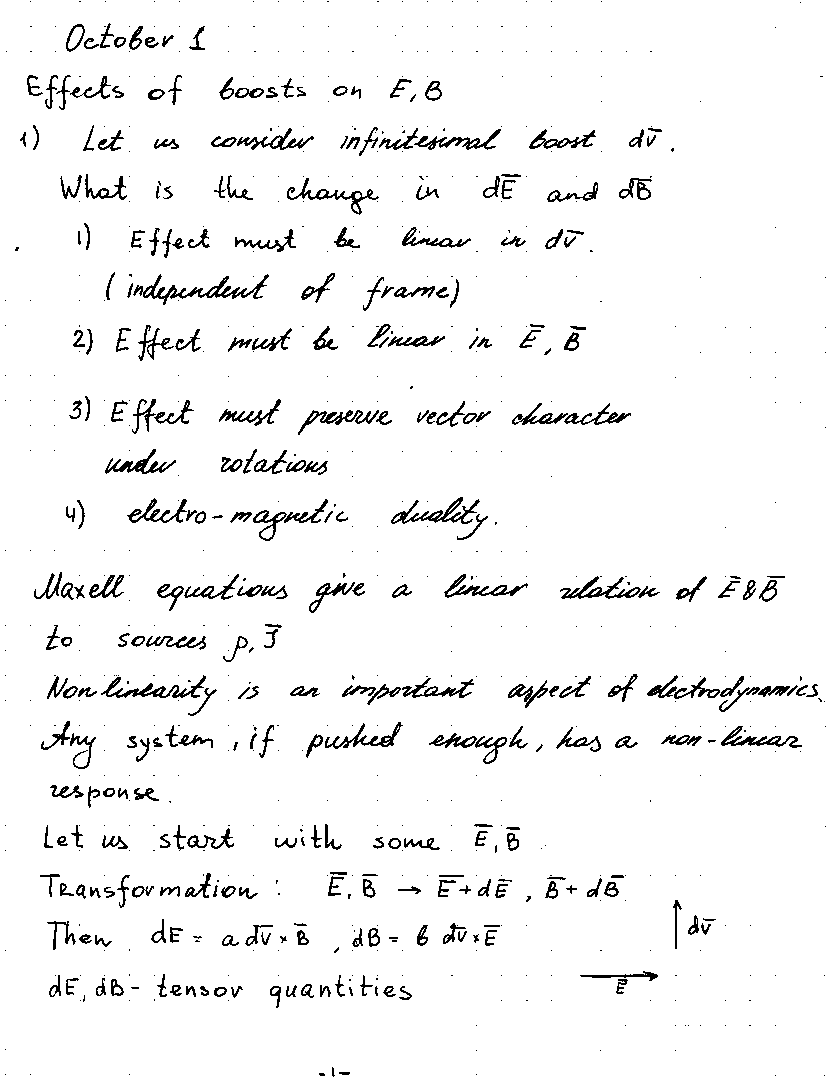 October 1
Effects of boosts on E, B
1) Let us consider infinitesimal boost dv̄.
What is the change in dĒ and dB̄
1) Effect must be linear in dv̄.
(independent of frame)
2) Effect must be linear in Ē, B̄
3) Effect must preserve vector character
under rotations
4) electro-magnetic duality.
Maxell equations give a linear relation of Ē & B̄
to sources ρ, J̄
Non linearity is an important aspect of electrodynamics.
Any system, if pushed enough, has a non-linear
response.
Let us start with some Ē, B̄
Transformation: Ē, B̄ → Ē + dĒ, B̄ + dB̄
Then dE = a dv̄ × B̄, dB = b dv̄ × Ē
dv̄
dE, dB - tensor quantities
Ē
-1-